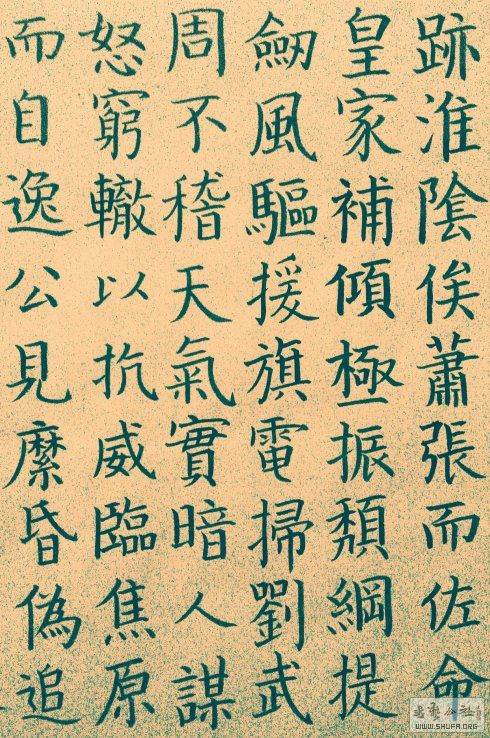 跡淮陰俟蕭張而佐命
皇家補傾極振頹綱提
劒風驅援旗電掃劉武
周不稽天氣實暗人謀
怒窮轍以抗威臨焦原
而自逸公見縻昏偽追
WWW.SHUFA.ORG